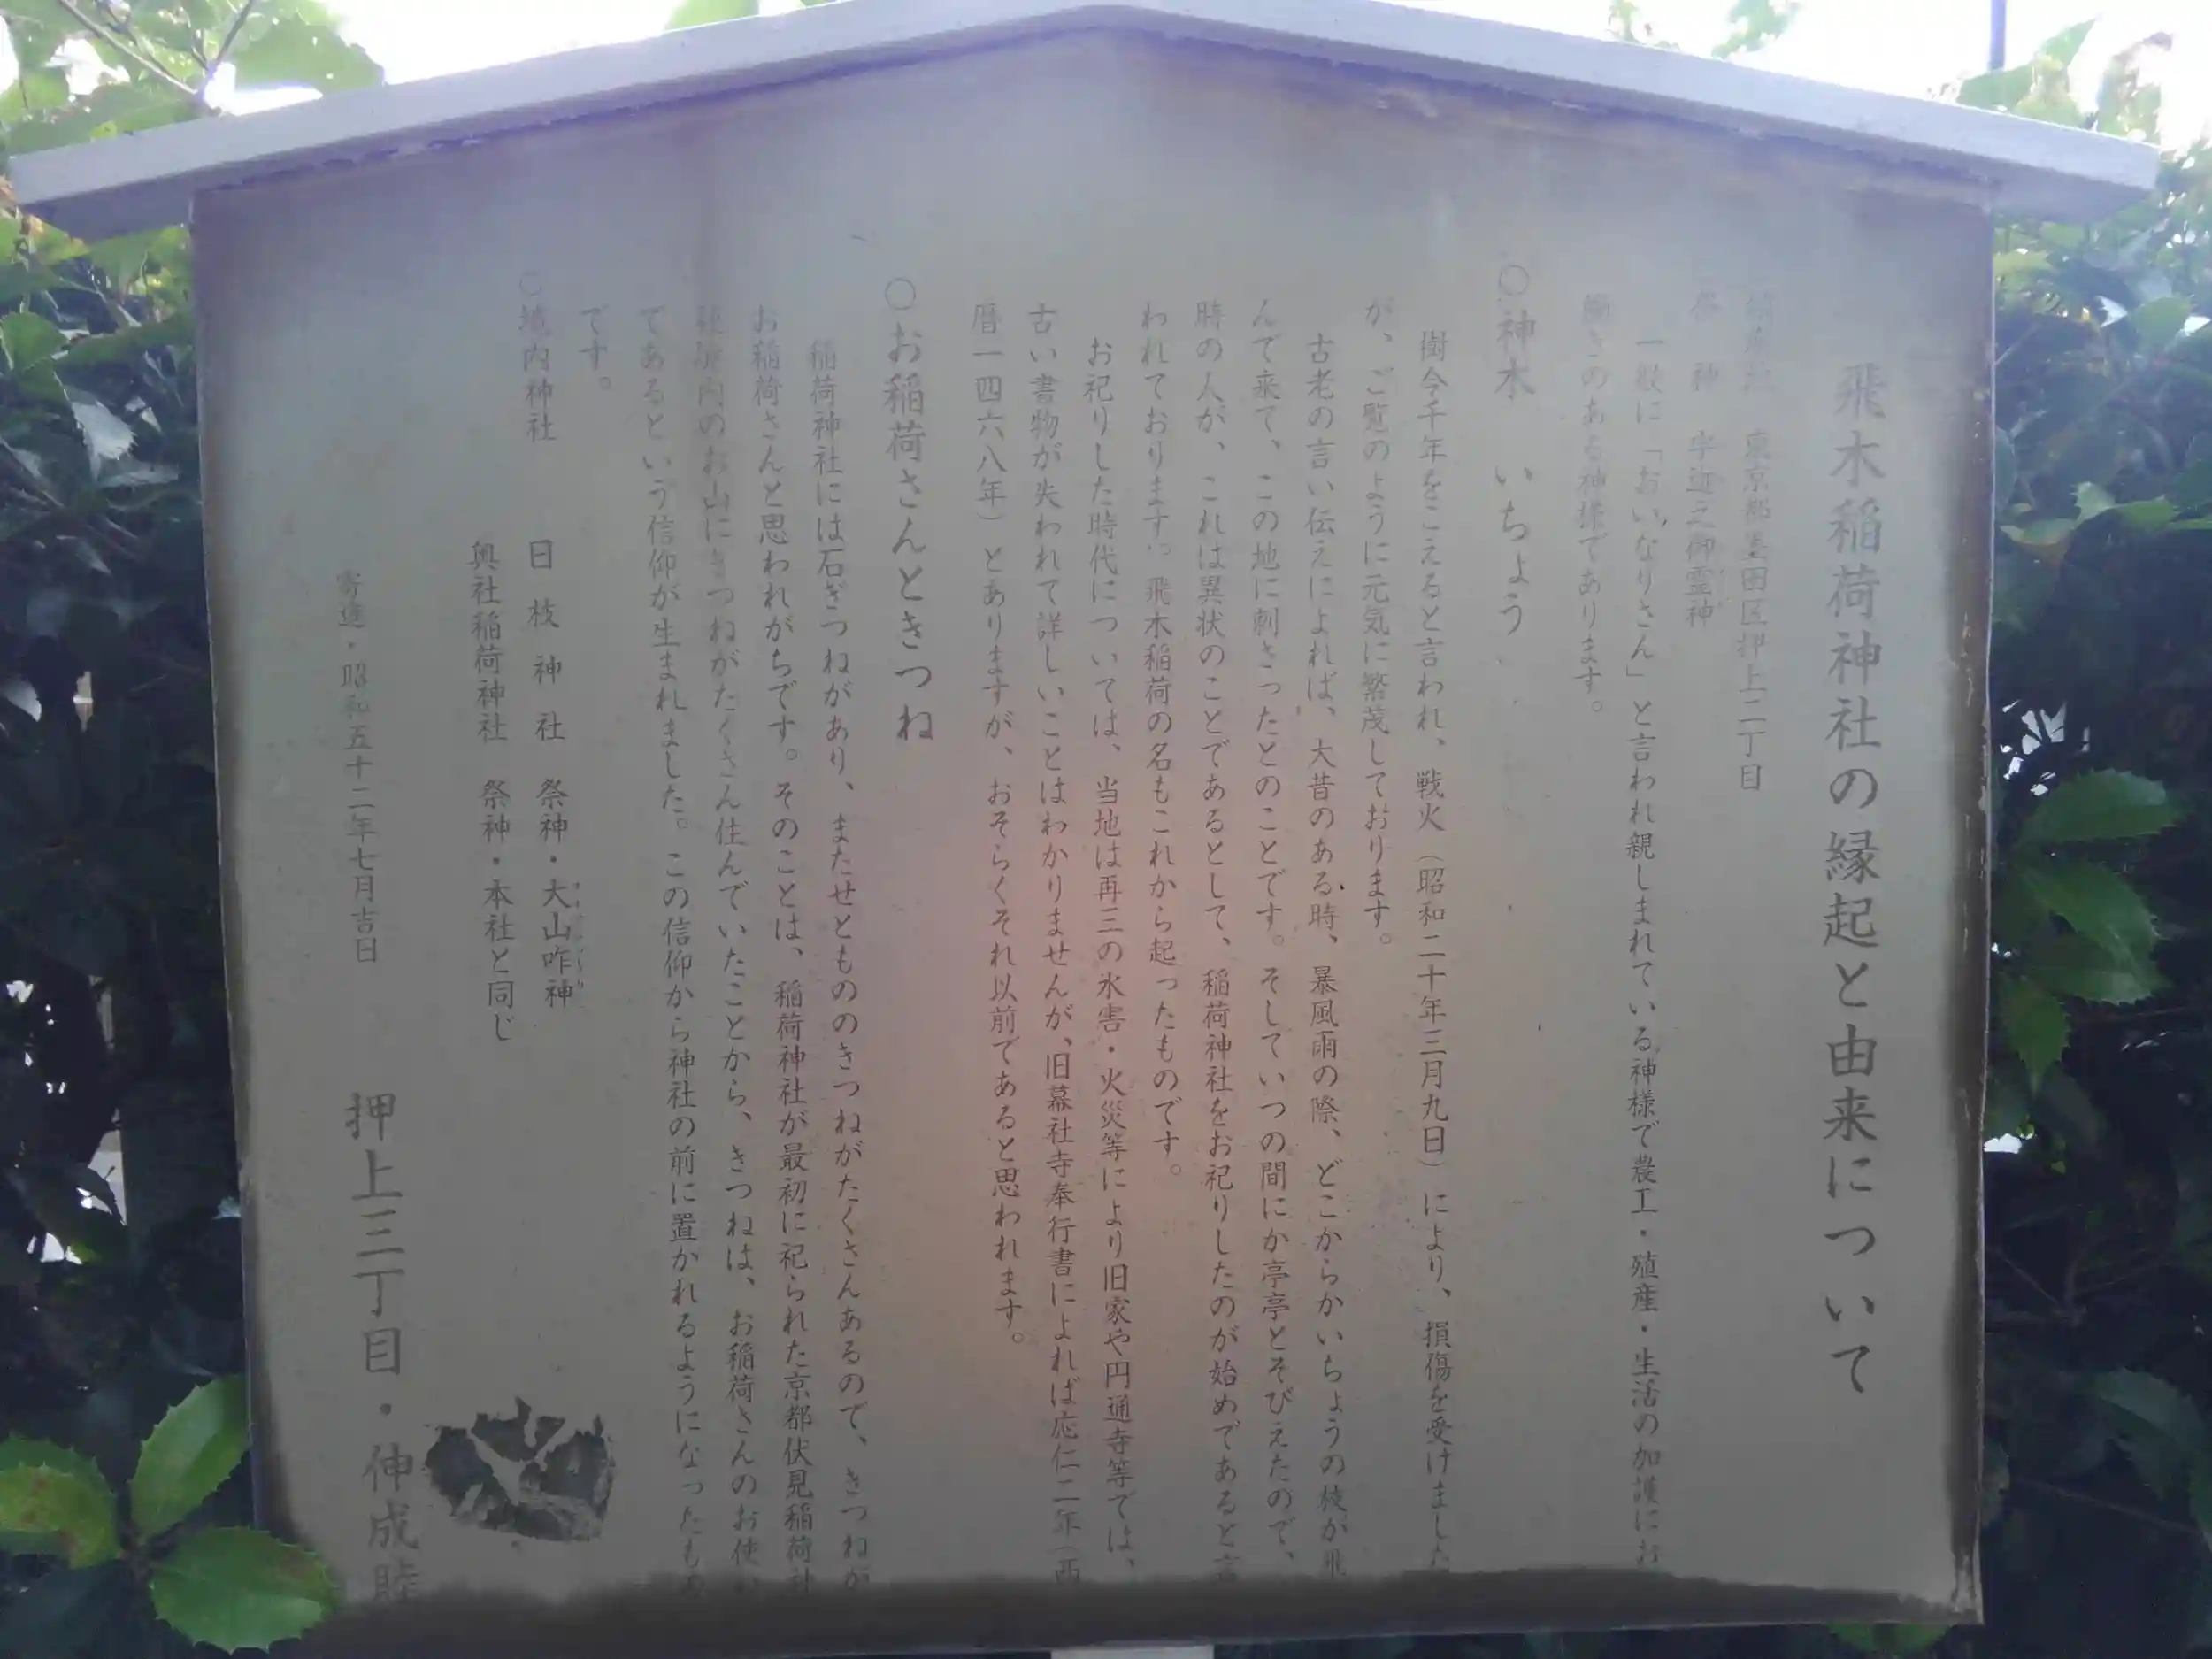 飛木稲荷神社の縁起と由来について
東京都墨田区押上二丁目
祭 神 宇迦之御霊神
一般に「おいなりさん」と言われ親しまれている神様で農工・殖産・生活の加護にお
働きのある神様であります。
○神木 いちょう
樹令千年をこえると言われ、戦火(昭和二十年三月九日)により、損傷を受けました
が、ご覧のように元気に繁茂しております。
古老の言い伝えによれば、大昔のある時、暴風雨の際、どこからかいちょうの枝が飛
んで来て、この地に刺さったとのことです。そしていつの間にか亭亭とそびえたので、
時の人が、これは異状のことであるとして、稲荷神社をお祀りしたのが始めであると言
われております。飛木稲荷の名もこれから起ったものです。
お祀りした時代については、当地は再三の水害・火災等により旧家や円通寺等では、
古い書物が失われて詳しいことはわかりませんが、旧幕社寺奉行書によれば応仁二年(西
暦一四六八年)とありますが、おそらくそれ以前であると思われます。
○お稲荷さんときつね
稲荷神社には石ぎつねがあり、またせともののきつねがたくさんあるので、きつねが
お稲荷さんと思われがちです。そのことは、稲荷神社が最初に祀られた京都伏見稲荷神
社境内のお山にきつねがたくさん住んでいたことから、きつねは、お稲荷さんのお使い
であるという信仰が生まれました。この信仰から神社の前に置かれるようになったもの
です。
○境内神社
日枝神社 祭神・大山咋神
奥社稲荷神社 祭神・本社と同じ
寄進・昭和五十二年七月吉日
押上三丁目・伸成睦